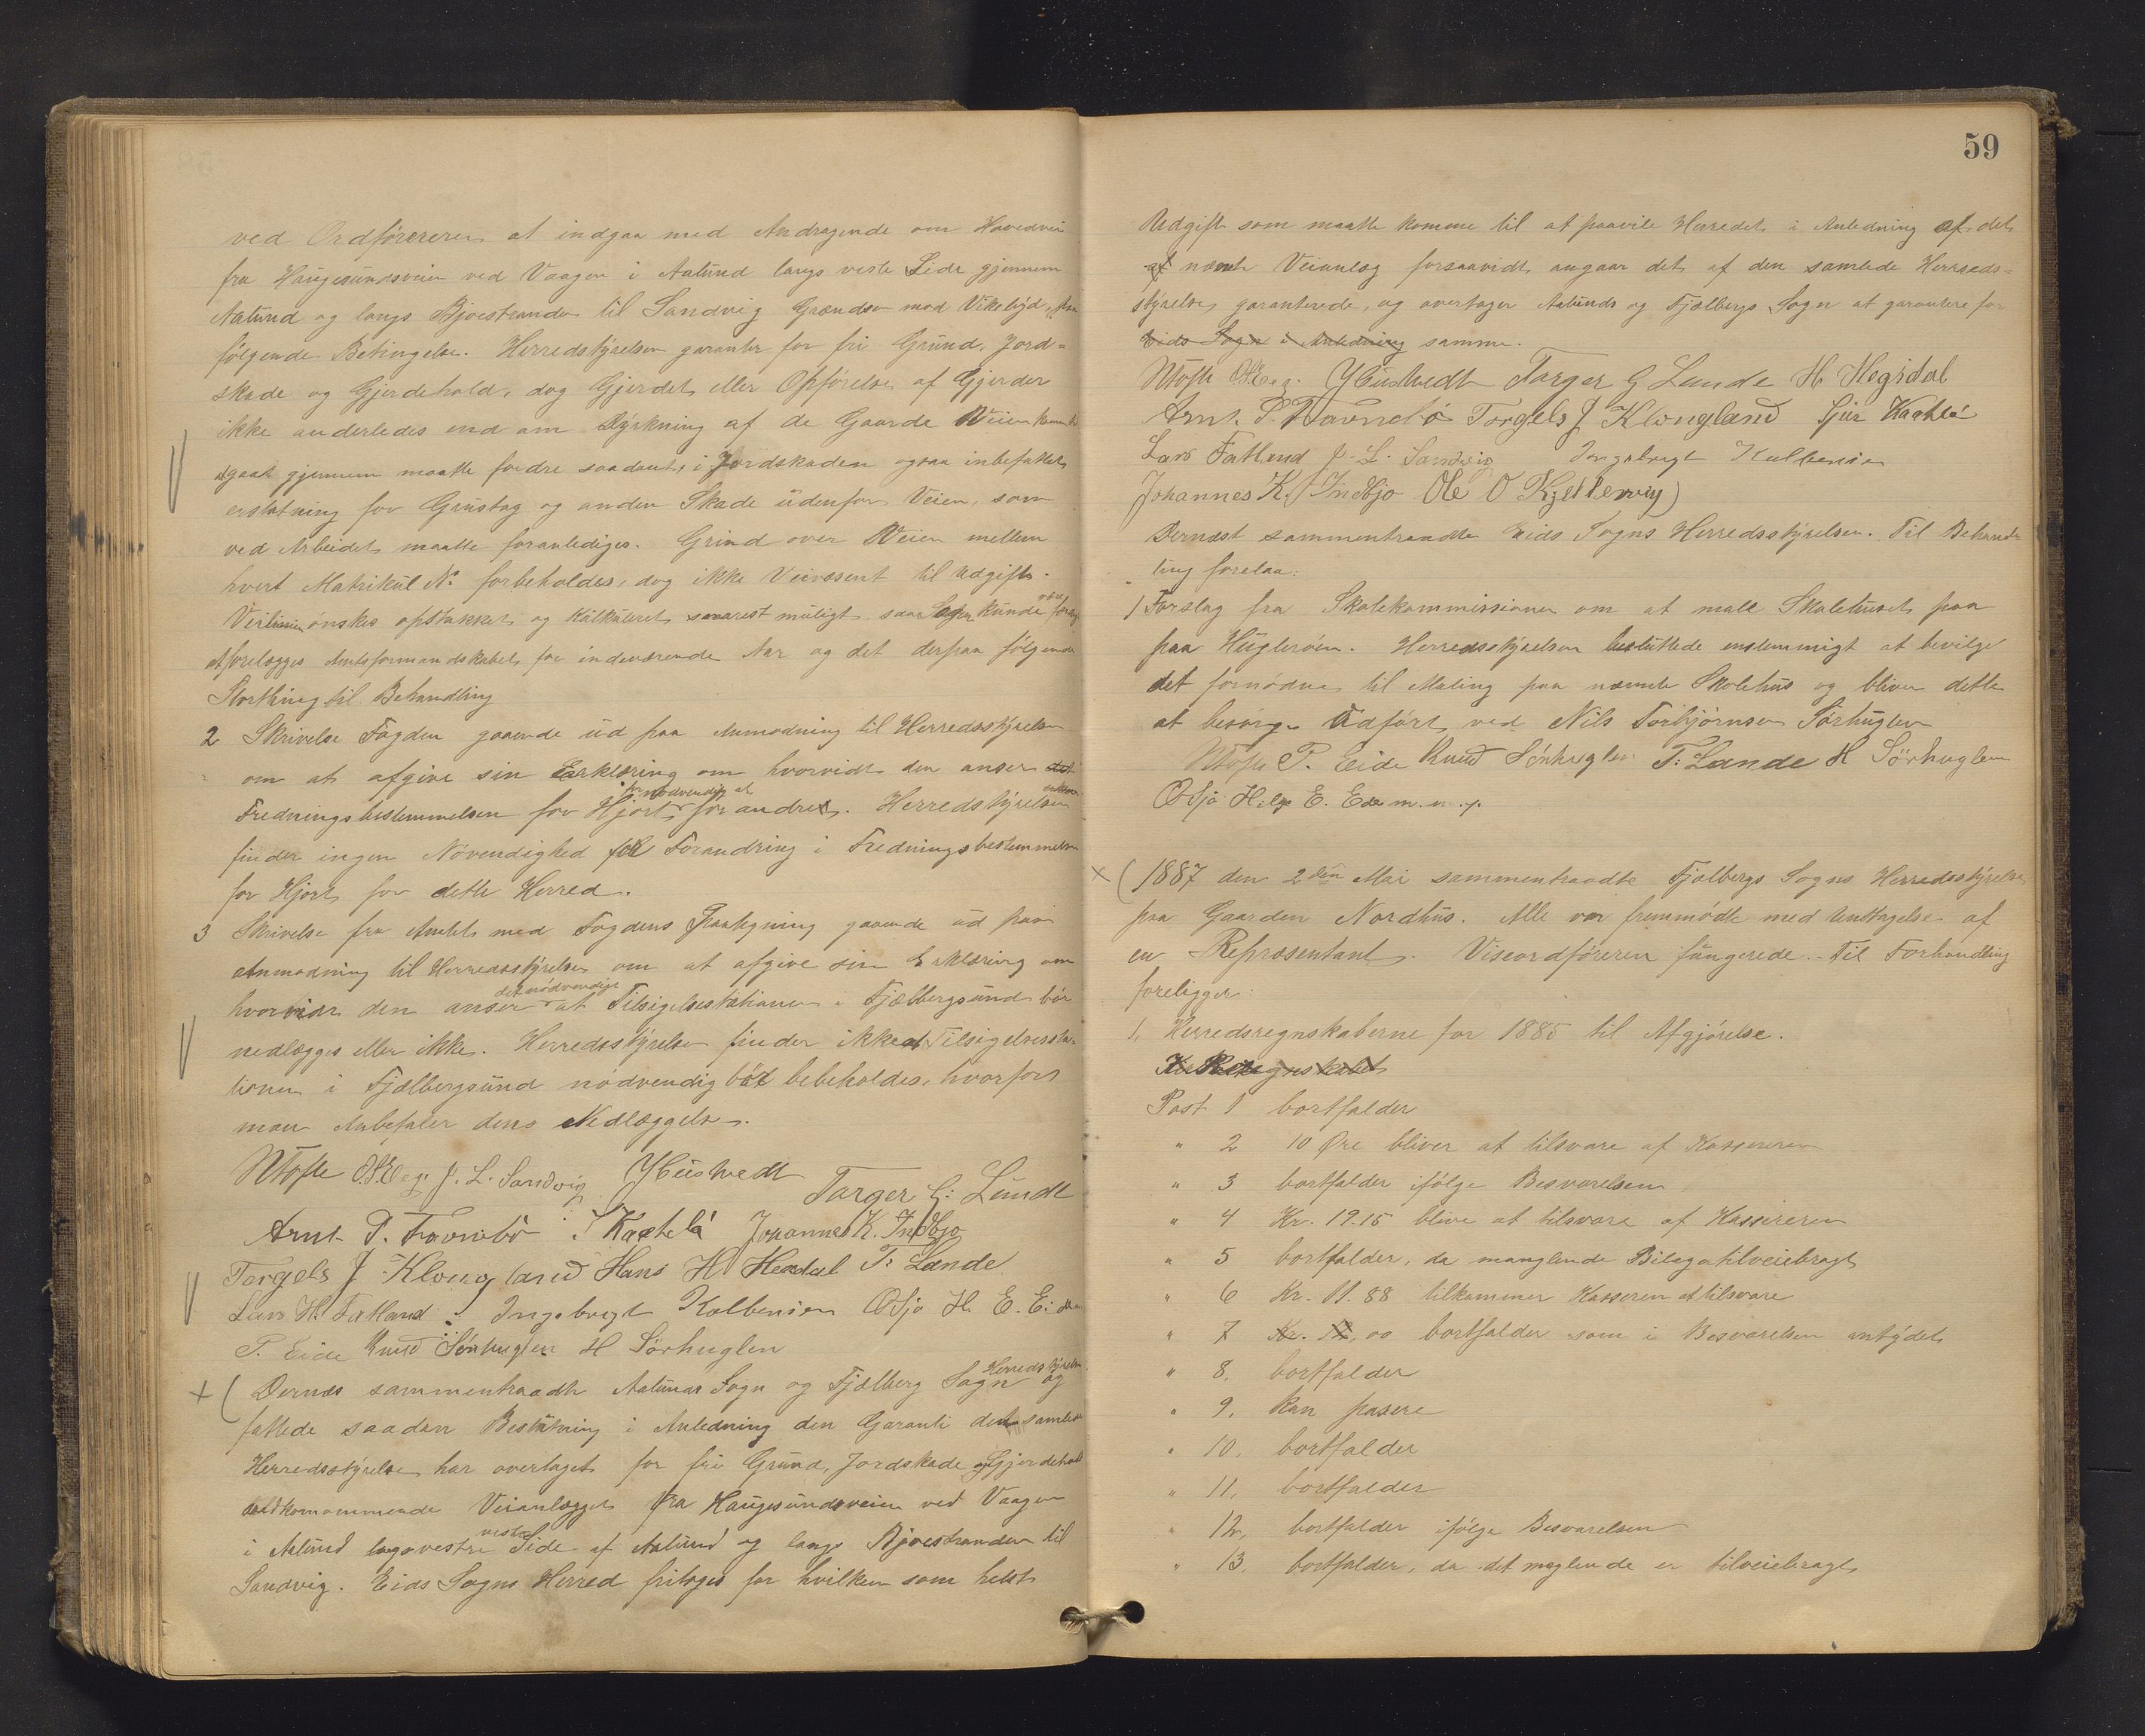 ved Ordföreren at indgaa med Andragende om Hovedvei
fra Haugesundsveien ved Vaagen i Aalund langs vestre Side gjennem
Aalund og langs Bjoestranden til Sandvig Grændse mod Vikebygd, paa
følgende Betingelse. Herredstyrelsen garanter for fri Grund, Jord=
skade og Gjerdehold, dog Gjerdet eller Opförelse af Gjerder
ikke anderledes end om Dyrkning af de Gaarde Veien kommer
gaa gjennem maatte fordre saadant, i Jordskaden ogsaa inbefattet
erstatning for Grustag og anden Skade udenfor Veien, som
ved Arbeidet maatte foranlediges. Grind over Veien mellem
hvert Matrikul No forbeholdes, dog ikke Veivæsent til Udgift.
Veilinien önskes opstukket og kalkuleret snarest muligt saa Sagen kunde
forelægges Amtsformandskabet for indeværende Aar og det derpaa fölgende
Storthing til Behandling
2 Skrivelse Fogden gaaende ud paa Anmodning til Herredsstyrelsen
om at afgive sin Erklæring om hvorvidt den anser det
fornødvendig at
Fredningsbestemmelsen for Hjort forandres. Herredstyrelsen
finder ingen Növendighed for Forandring i Fredningsbestemmelsen
for Hjort for dette Herred.
3 Skrivelse fra Amtet med Fogdens Paategning gaaende ud paa
Anmodning til Herredsstyrelsen om at afgive sin Erklæring om
det nødvendige
hvorvidt den anser at Tilsigelsestationen i Fjælbergsund bör
nedlægges eller ikke. Herredsstyrelsen finder ikke at Tilsigelsessta-
tionen i Fjælbergsund nödvendig bör bebeholdes, hvorfor
man Anbefaler dens Nedlæggelse.
NTofte J. L. Sandvig YHustvedt
Targer G. Lunde
Arnt P. Tavnebö S Kaatelå Johannes K. Indbjo
Torgels J Klongland Hans H Hegdal T. Lande
Lars H. Fatland Ingebrigt Kolbensen OSjo H. E. Eide
P. Eide Knud Sörhuglen H Sörhuglen
Herredstyrelse
× ( Dernæs sammentraadte Aalunds Sogn og Fjælberg Sogn og
fattede saadan Beslutning i Anledning den Garanti den samlede
Herredsstyrelse har overtaget for fri Grund, Jordskade og Gjerdehold
vedkomommende Veianlægget fra Haugesundsveien ved Vaagen
vestre
i Aalund langs vestre Side af Aalund og langs Bjoestranden til
Sandvig. Eids Sogns Herred fritages for hvilken som helst
59
Udgift som maatte komme til at paavile Herredet i Anledning af det
af nævnte Veianlæg forsaavidt angaar det af den samlede Herreds=
styrelse garanterede, og overtager Aalunds og Fjælbergs Sogn at garantere for
Eids Sogn i Anledning samme.
NTofte YHustvedt Targer G Lunde H Hegdal
Arnt. P. Tavnebö Torgels J Klongland Sjur Kaatelå
Lars Fatland J. L. Sandvig Ingebrigt Kolbensen
Johannes K. Indbjo Ole O Kjellesvig)
Dernæst sammentraadte Eids Sogns Herredsstyrelsen. Til Behand-
ling forelaa:
1 Forslag fra Skolekommissionen om at male Skolehuset paa
paa Huglerøen. Herredsstyrelsen besluttede enstemmigt at bevilge
det fornödne til Maling paa nævnte Skolehus og bliver dette
at besörge Udfört ved Nils Torbjörnsen Sörhuglen
NTofte P. Eide Knud Sörhuglen T. Lande H Sörhuglen
OSjo H. E. Eide m. n. p.
× ( 1887 den 2den Mai sammentraadte Fjælbergs Sogns Herredsstyrelse
paa Gaarden Nordhus. Alle var fremmödte med Undtagelse af
en Repræsentant. Viseordföreren fungerede. Til Forhandling
foreligger:
1, Herredsregnskaberne for 1885 til Afgjörelse.
Post 1 bortfalder
" 2 10 Öre bliver at tilsvare af Kassereren
" 3 bortfalder ifölge Besvarelsen
" 4 Kr. 19.15 blive at tilsvare af Kassereren
" 5 bortfalder, da manglende Bilag er tilveiebragt
" 6 Kr. 11.88 tilkommer Kasseren at tilsvare
" 7 bortfalder som i Besvarelsen antydet
" 8, bortfalder
" 9, kan pasere
" 10, bortfalder
" 11, bortfalder
" 12, bortfalder ifölge Besvarelsen
" 13, bortfalder, da det maglende er tilveiebragt